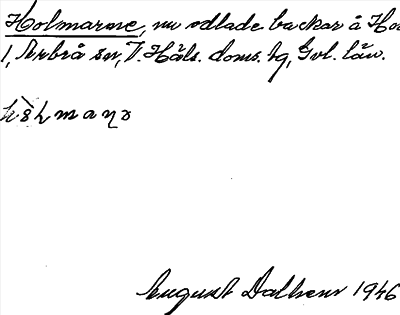 Holmarne, nu odlade backar å Ho
1, Arbrå sn, V. Häls. doms. hg, Gvl. län.
August Dalhem 1946